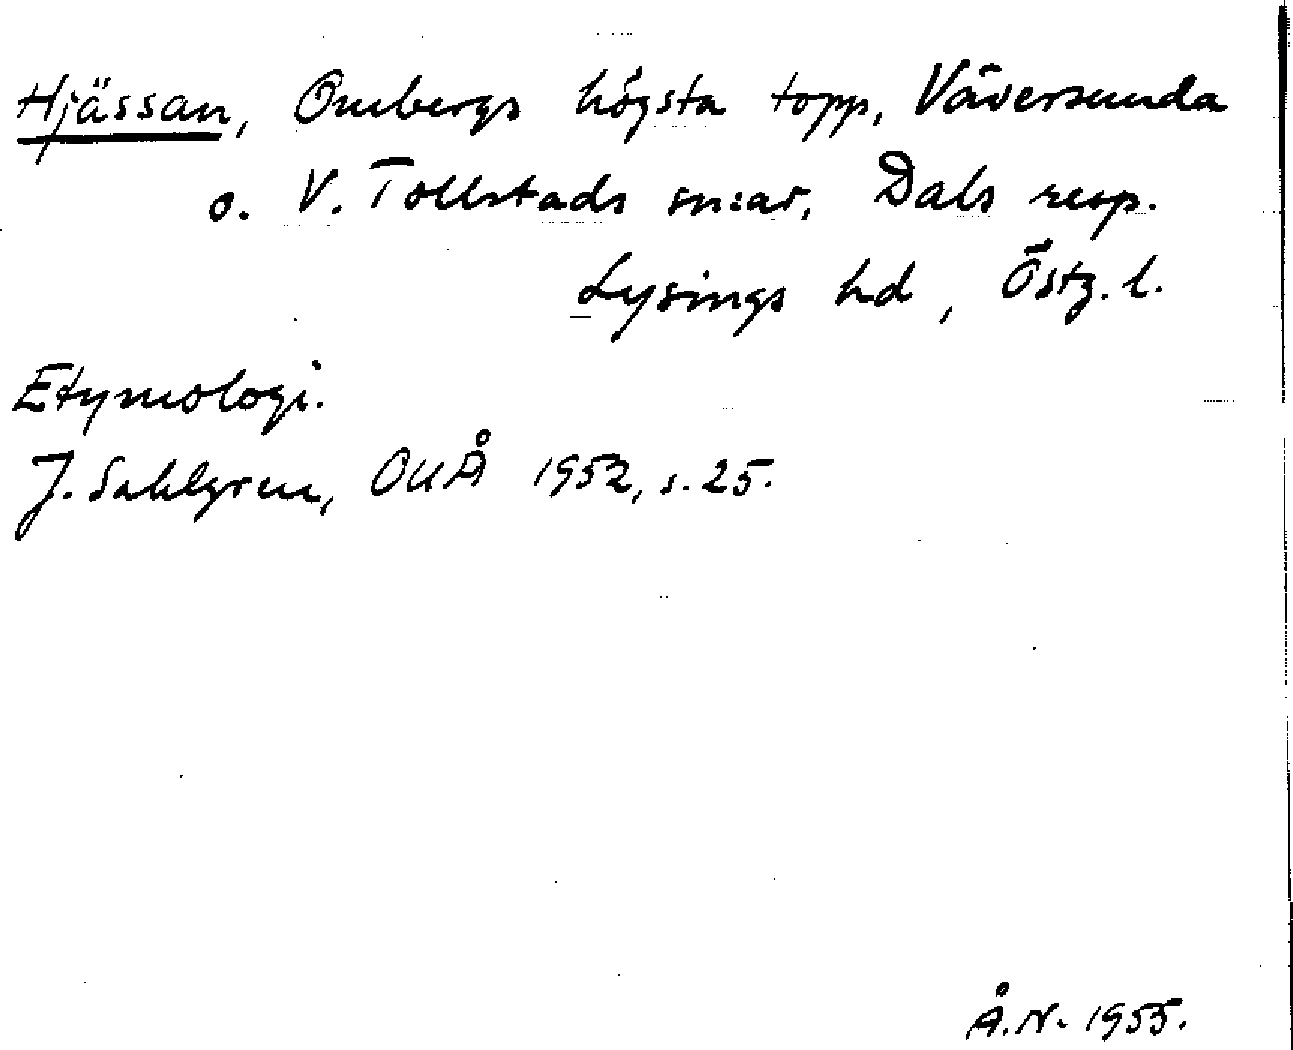 Hjässan, Ombergs högsta topp, Väversunda
o. V. Tollstads sn:ar, Dals resp.
Lysings hd, Östg. l.
Etymologi.
J. Sahlgren, OUÅ 1952, s. 25.
Å. N. 1955.